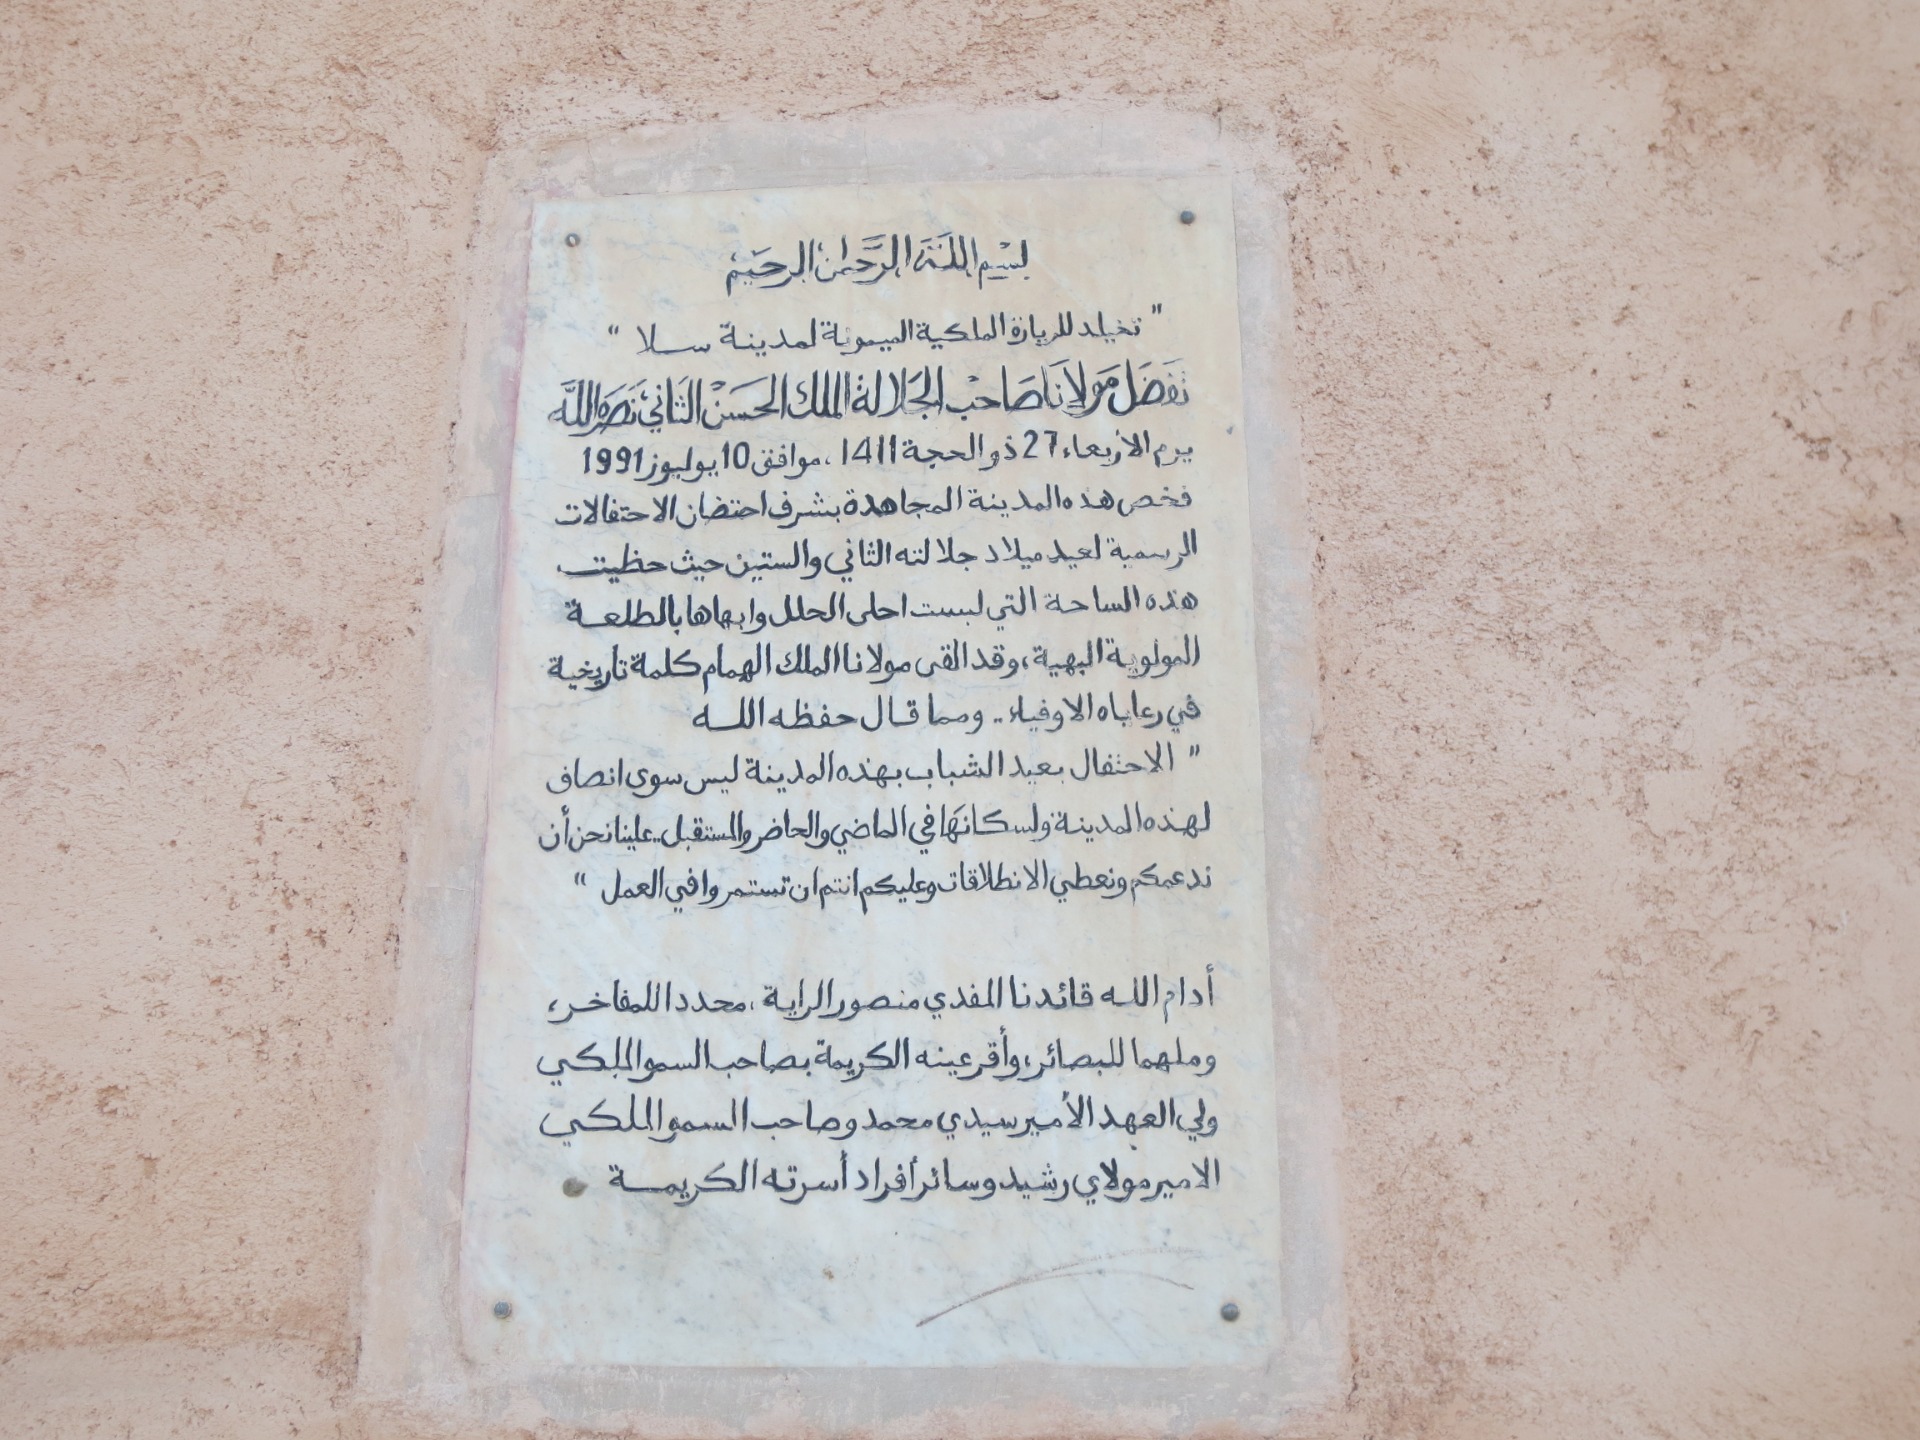 بسم الله الرحمن الرحيم
" تخيلد للزيارة الملكية الميمونة لمدينة سلا "
تفضل مولانا صاحب الجلالة الملك الحسن الثاني نصره الله
يوم الأربعاء 27 ذو الحجة 1411، موافق 10 يوليوز 1991
فخص هذه المدينة المجاهدة بشرف احتضان الاحتفالات
الرسمية لعيد ميلاد جلالته الثاني والستين حيث حظيت
هذه الساحة التي لبست احلى الحلل وابهاها بالطلعة
المولوية البهية، وقد القى مولانا الملك الهمام كلمة تاريخية
في رعاياه الاوفياء .. ومما قال حفظه الله
" الاحتفال بعيد الشباب بهذه المدينة ليس سوى انصاف
لهذه المدينة ولسكانها في الماضي والحاضر والمستقبل .. علينا نحن أن
ندعمكم ونعطي الانطلاقات وعليكم انتم ان تستمروا في العمل "
أدام الله قائدنا المفدي منصور الراية، محددا للمفاخر،
وملهما للبصائر، وأقر عينه الكريمة بصاحب السمو الملكي
ولي العهد الأمير سيدي محمد وصاحب السمو الملكي
الامير مولاي رشيد وسائر أفراد أسرته الكريمة